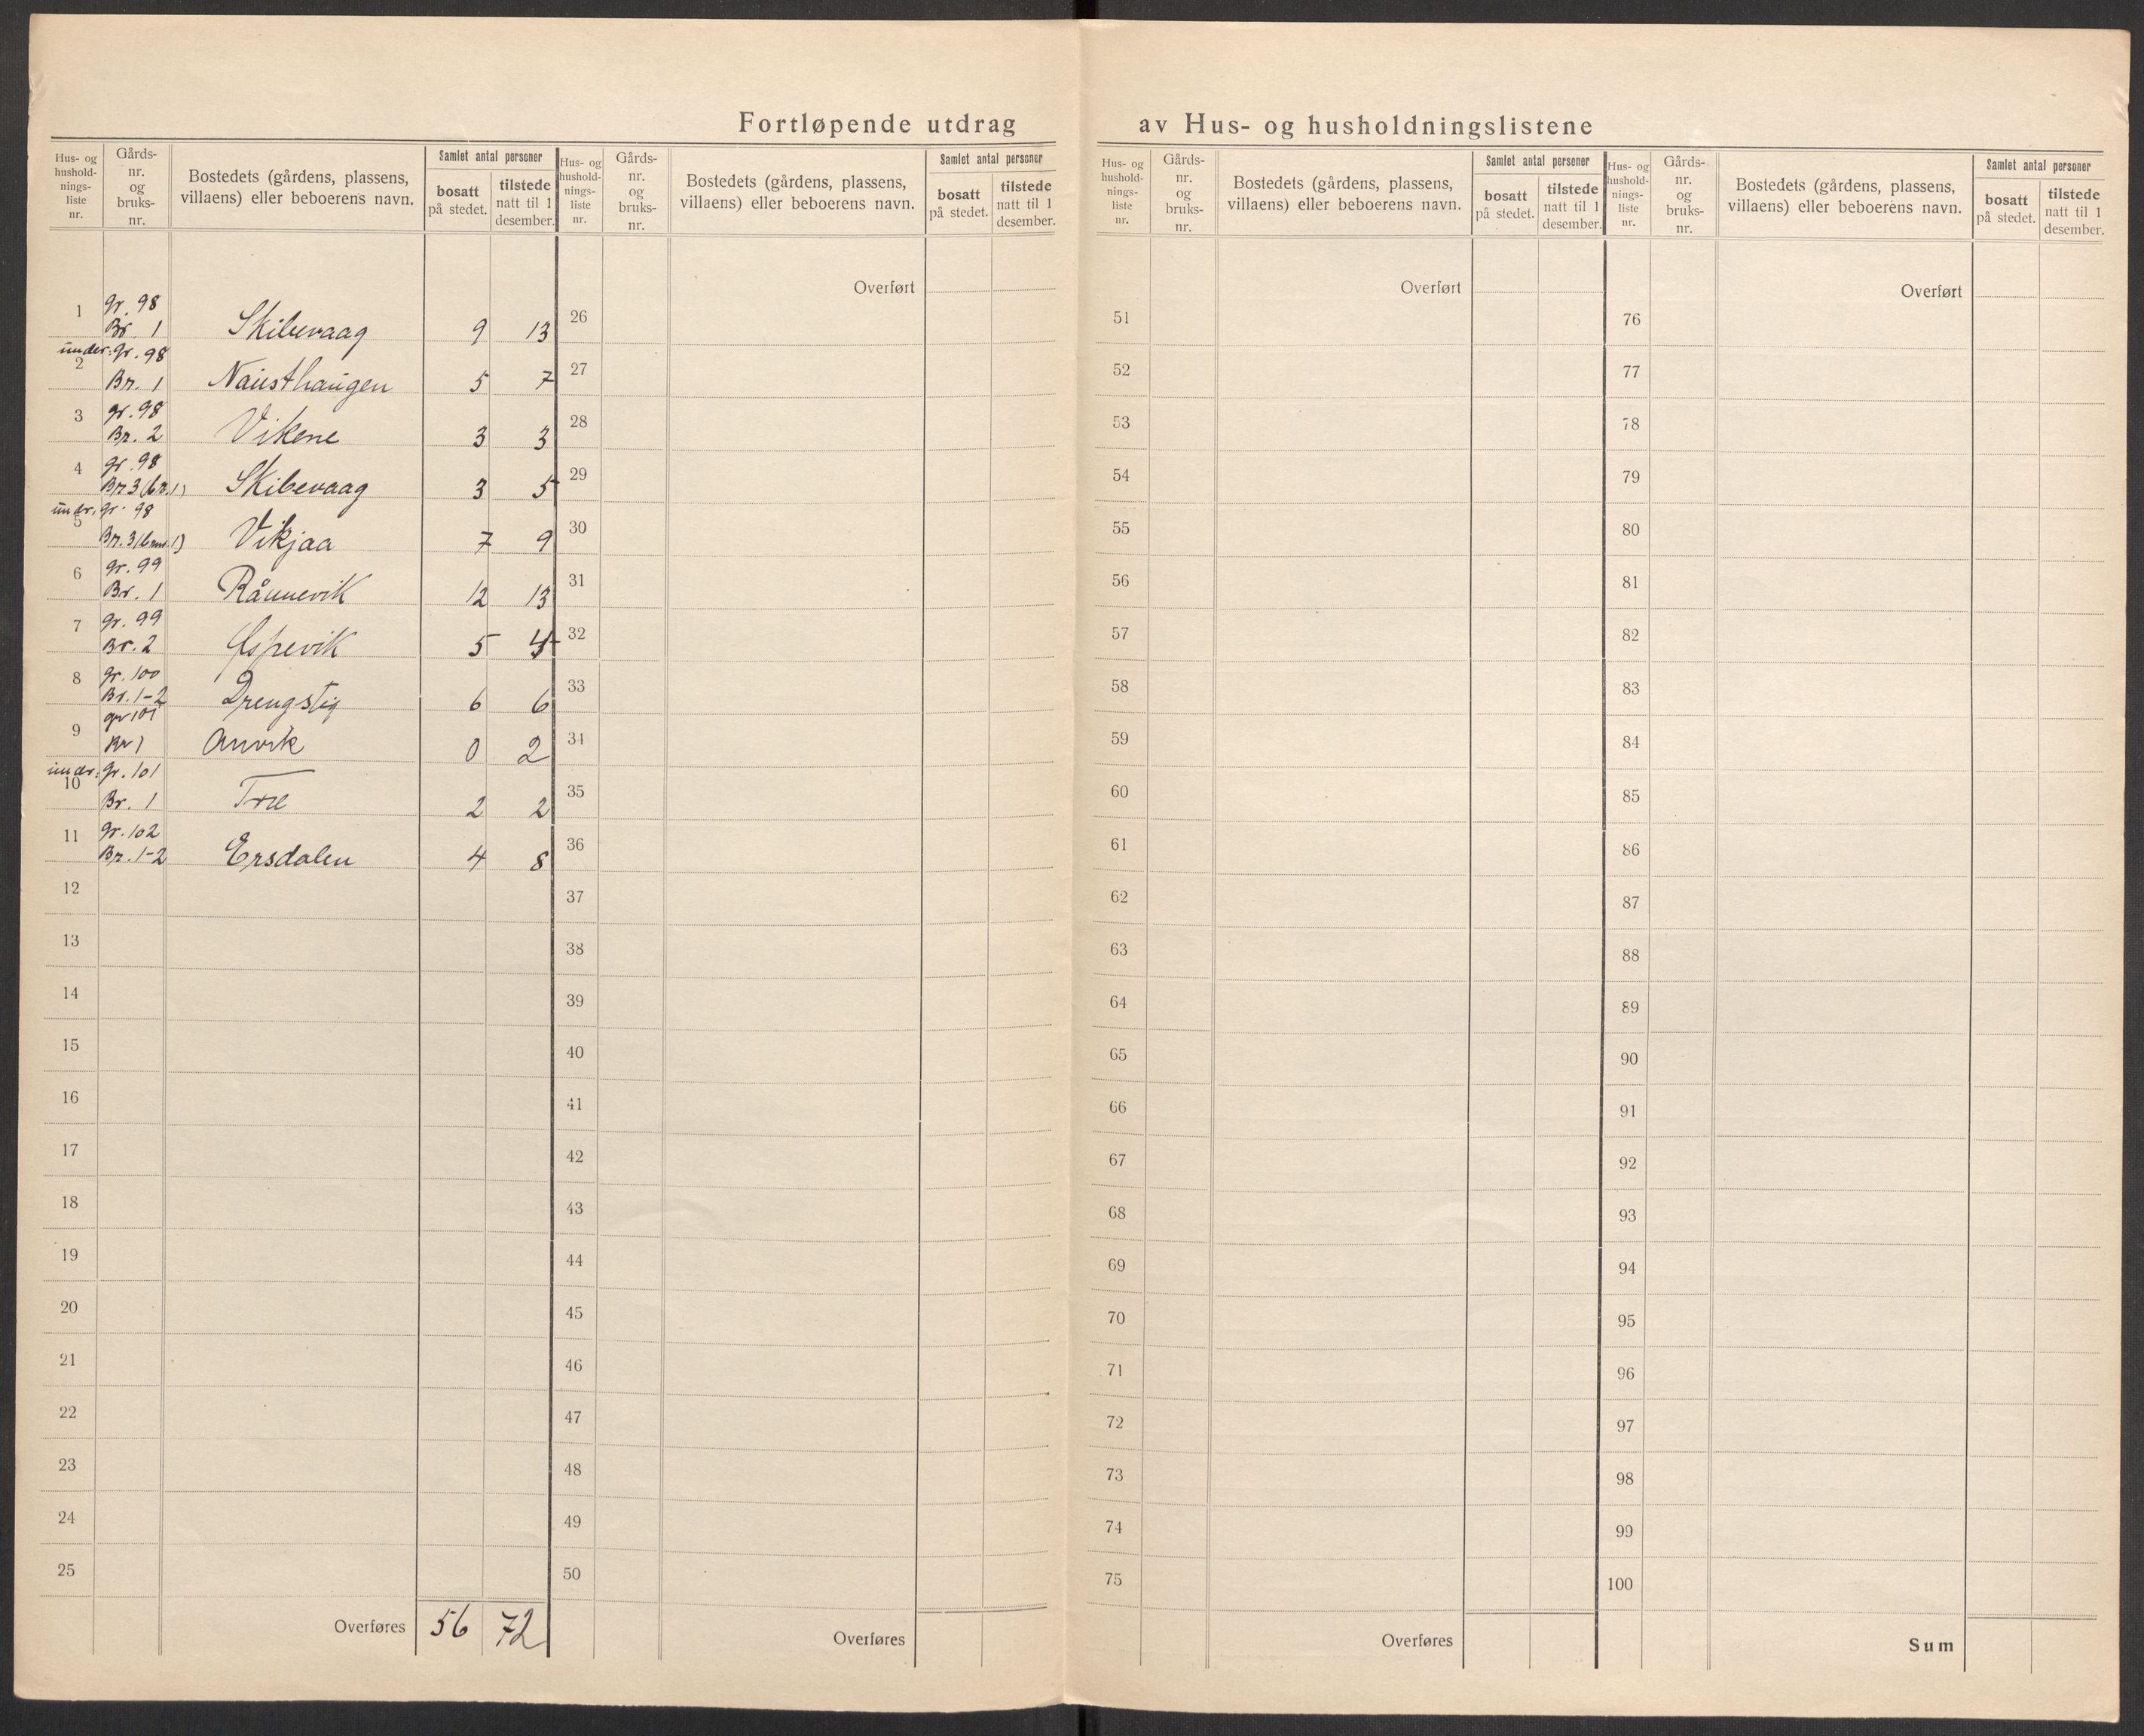 Fortløpende utdrag av Hus- og husholdningslistene
Hus- og hushold-nings-liste nr. Gårds-nr. og bruks-nr. Bostedets (gårdens, plassens, villaens) eller beboerens navn. Samlet antal personer bosatt på stedet. tilstede natt til 1 desember.
Hus- og hushold-nings-liste nr. Gårds-nr. og bruks-nr. Bostedets (gårdens, plassens, villaens) eller beboerens navn. Samlet antal personer bosatt på stedet. tilstede natt til 1 desember.
Hus- og hushold-nings-liste nr. Gårds-nr. og bruks-nr. Bostedets (gårdens, plassens, villaens) eller beboerens navn. Samlet antal personer bosatt på stedet. tilstede natt til 1 desember.
Hus- og hushold-nings-liste nr. Gårds-nr. og bruks-nr. Bostedets (gårdens, plassens, villaens) eller beboerens navn. Samlet antal personer bosatt på stedet. tilstede natt til 1 desember.
1 gr. 98 Br. 1 Skibevaag 9 13
2 under: gr. 98 Br. 1 Nausthaugen 5 7
3 gr. 98 Br. 2 Vikene 3 3
4 gr. 98 Br 3 (br. 1) Skibevaag 3 5
5 undr. gr. 98 Br. 3 (1) Vikjaa 7 9
6 gr. 99 Br. 1 Rånnevik 12 13
7 gr. 99 Br. 2 Espevik 5 4
8 gr. 100 Br. 1-2 Drengstig 6 6
9 gr 101 Br 1 Anvik 0 2
10 undr: gr. 101 Br. 1 Træ 2 2
11 gr. 102 Br. 1-2 Ersdalen 4 8
12
13
14
15
16
17
18
19
20
21
22
23
24
25
Overføres 56 72
Overført
26
27
28
29
30
31
32
33
34
35
36
37
38
39
40
41
42
43
44
45
46
47
48
49
50
Overføres
Overført
51
52
53
54
55
56
57
58
59
60
61
62
63
64
65
66
67
68
69
70
71
72
73
74
75
Overføres
Overført
76
77
78
79
80
81
82
83
84
85
86
87
88
89
90
91
92
93
94
95
96
97
98
99
100
Sum